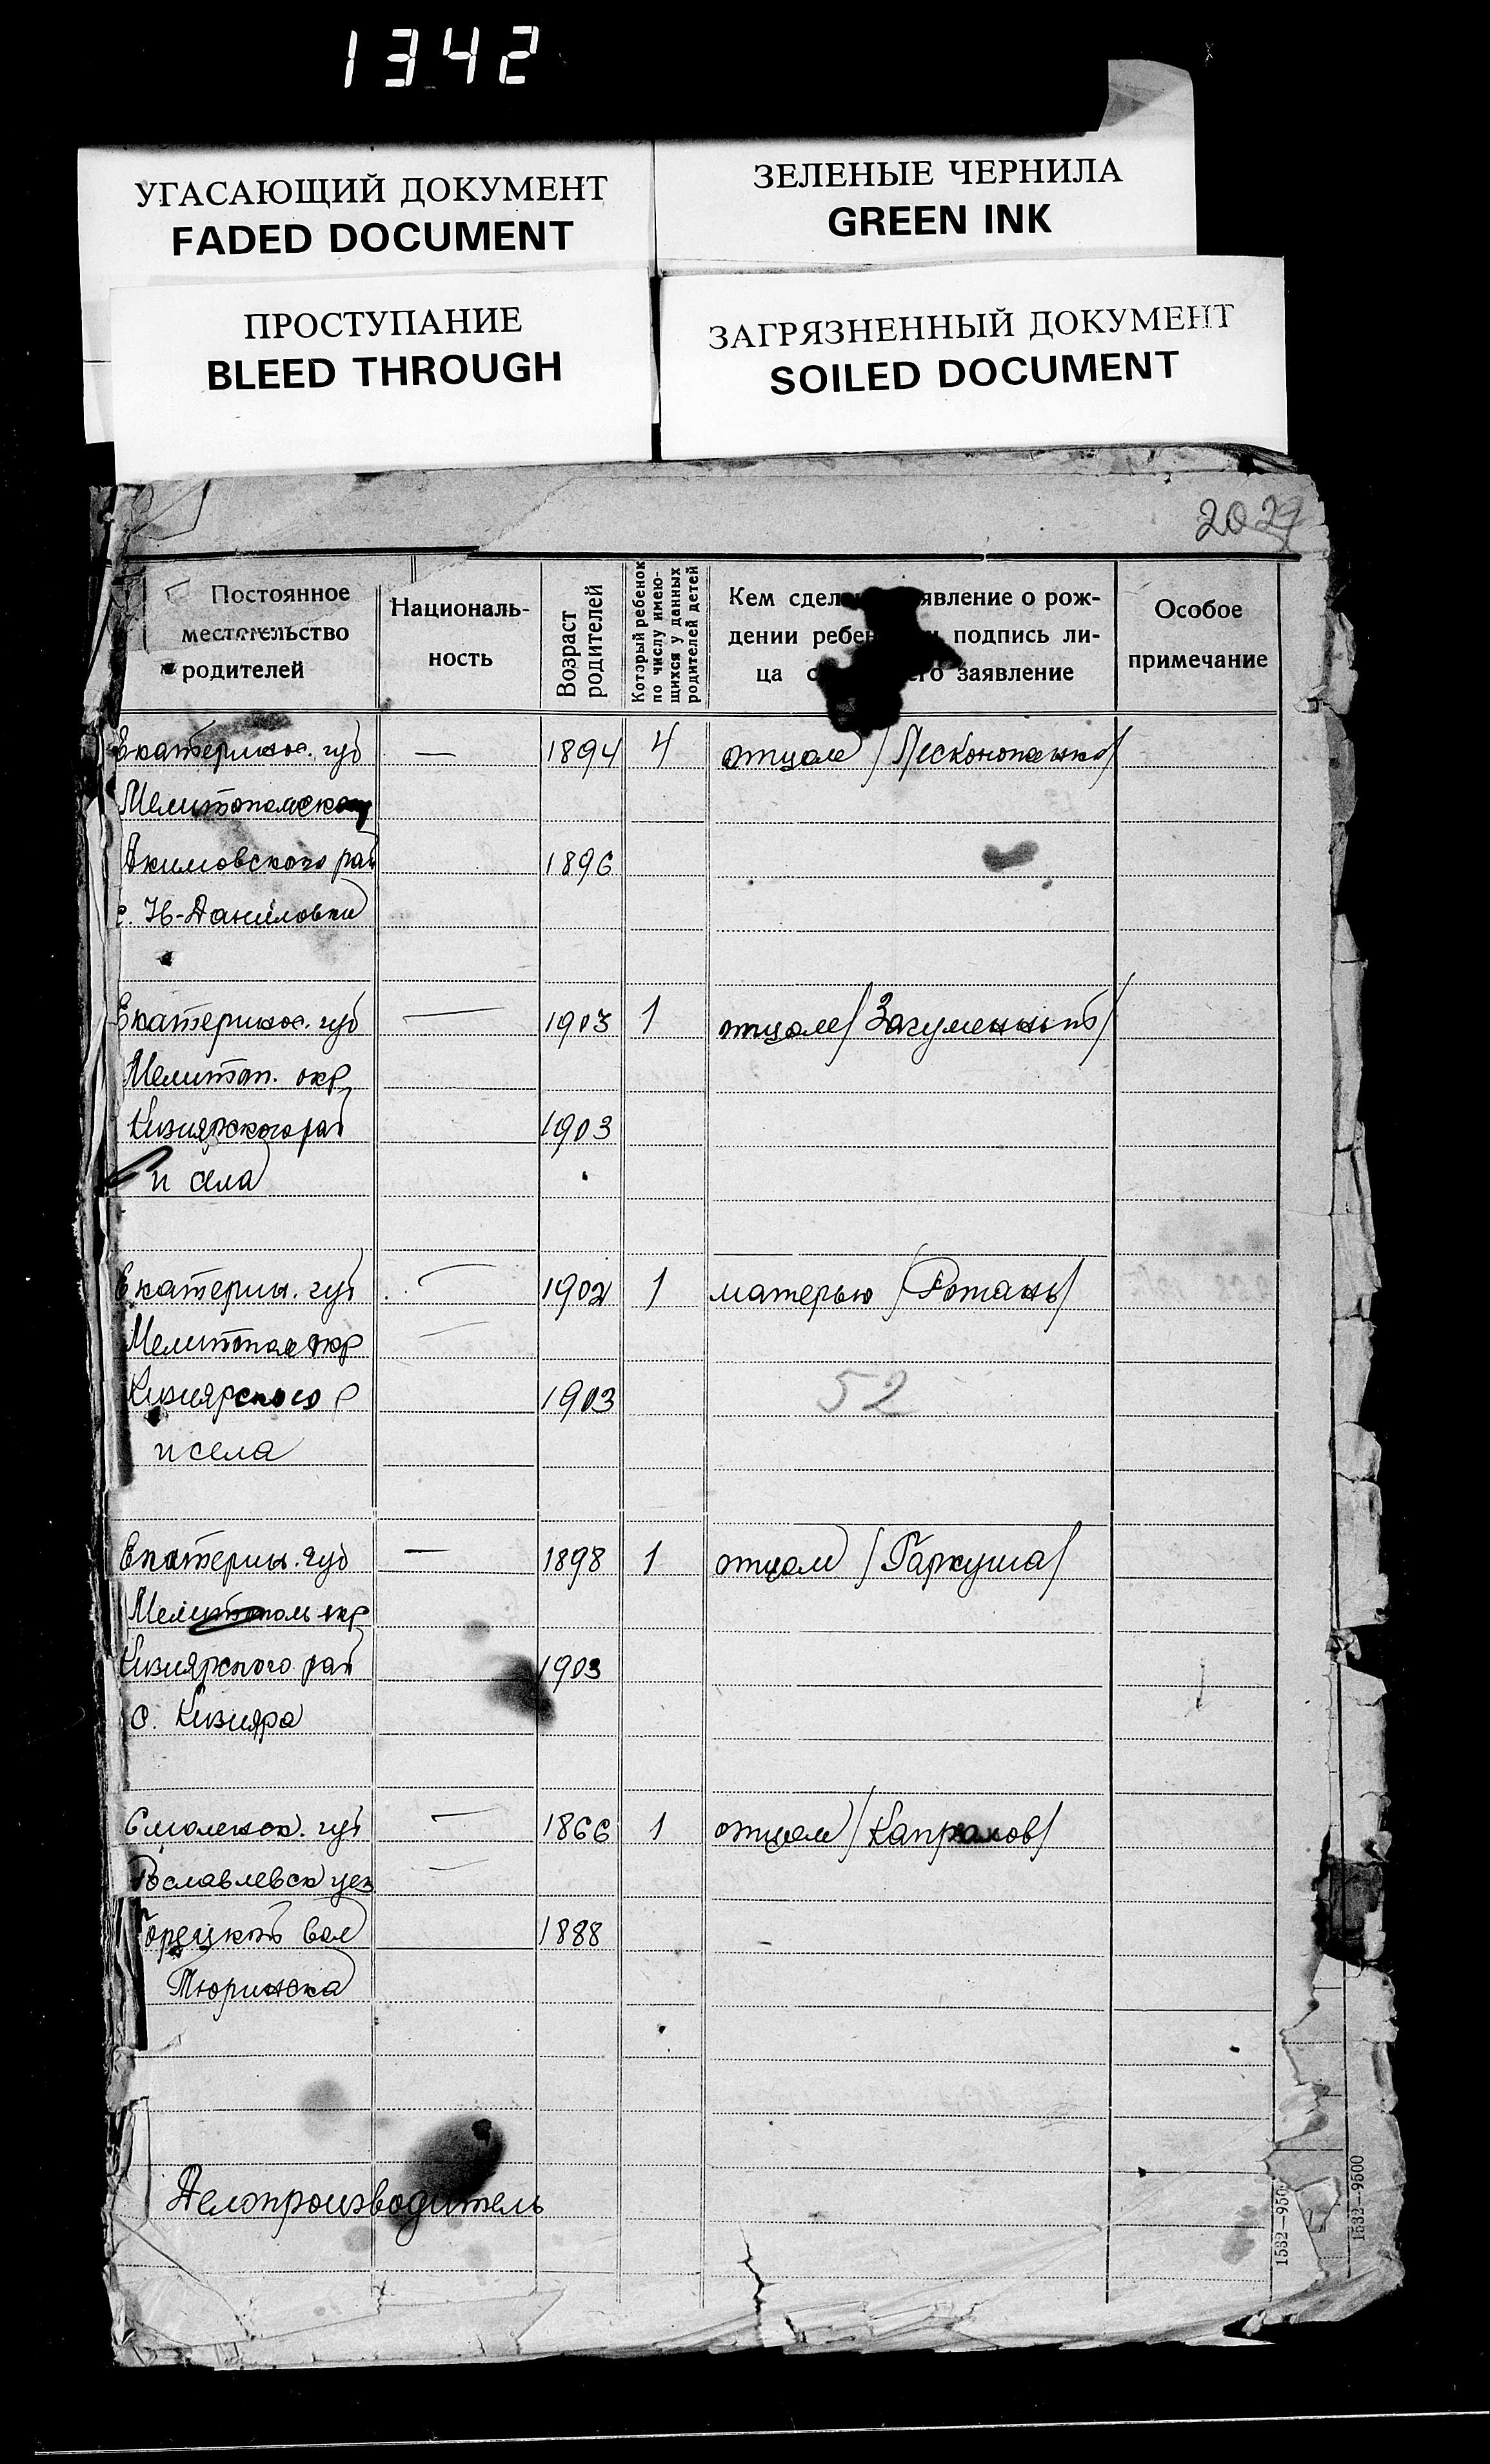 1342
УГАСАЮЩИЙ ДОКУМЕНТ
FADED DOCUMENT
ЗЕЛЕНЫЕ ЧЕРНИЛА
GREEN INK
ПРОСТУПАНИЕ
BLEED THROUGH
ЗАГРЯЗНЕННЫЙ ДОКУМЕНТ
SOILED DOCUMENT
Постоянное
местожительство
родителей
Националь-
ность
Возраст
родителей
Который ребенок
по числу имею-
щихся у данных
родителей детей
Кем сдел явление о рож-
дении ребен подпись ли-
ца с его заявление
Особое
примечание
Екатеринос. губ — 1894 4 отцом /Песконопенко/
Мелитопольск
Акимовского рай 1896
с. Н-Даниловки
Екатеринос. губ — 1903 1 отцом /Загуменный/
Мелитоп. окр
Кизиярского рай 1903
и села
Екатерин. губ — 1902 1 матерью /Ротань/
Мелитопол окр —
Кизиярского р 1903
52
и села
Екатерин. губ — 1898 1 отцом /Гаркуша/
Мелитополь окр
Кизиярского рай 1903
с. Кизияра
Смоленск. губ — 1866 1 отцом /Капралов/
Рославлевск уез —
Горецкой вол 1888
Тюринска
Делопроизводитель
1532—950
1532—9500